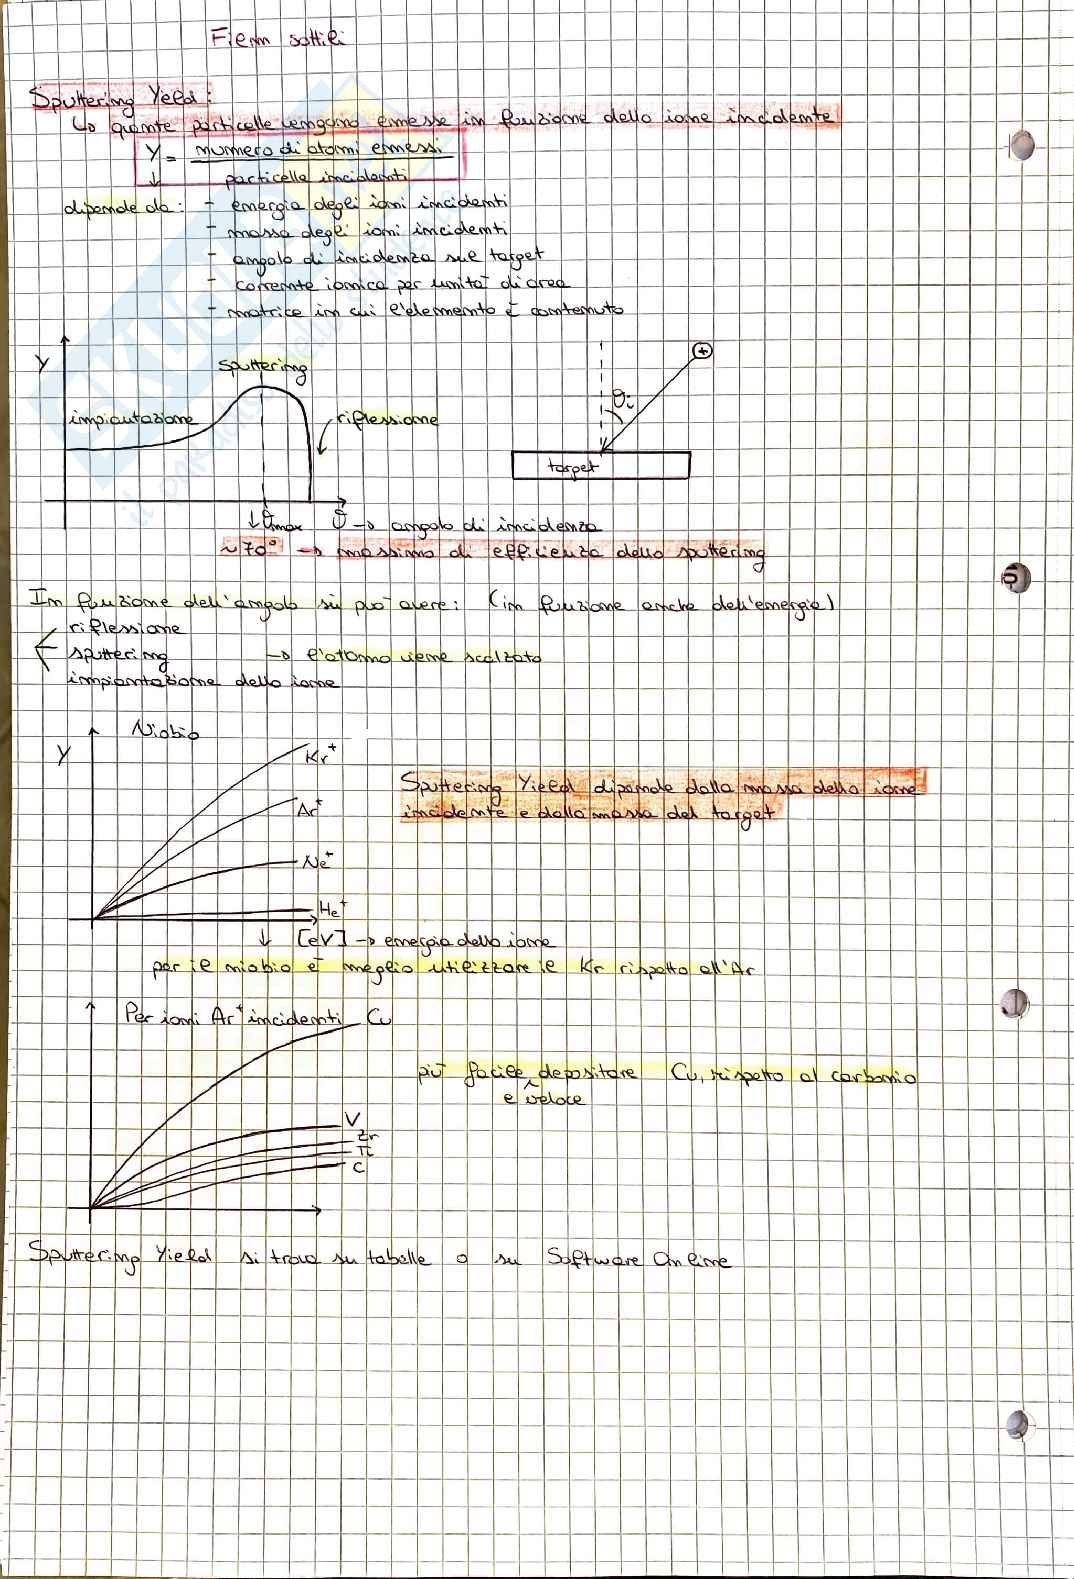 Film sottili
Sputtering Yield:
↳ quante particelle vengono emesse in funzione dello ione incidente
Y = numero di atomi emessi
particelle incidenti
dipende da: - energia degli ioni incidenti
- massa degli ioni incidenti
- angolo di incidenza sul target
- corrente ionica per unità di area
- matrice in cui l'elemento è contenuto
Y
sputtering
impiantazione
riflessione
θi
+
target
↓ θmax θ → angolo di incidenza
~70° → massimo di efficienza dello sputtering
In funzione dell'angolo si può avere: (in funzione anche dell'energia)
riflessione
sputtering → l'atomo viene scalzato
impiantazione dello ione
Niobio
Y
Kr+
Ar+
Ne+
He+
Sputtering Yield dipende dalla massa dello ione
incidente e dalla massa del target
↓ [eV] → energia dello ione
per il niobio è meglio utilizzare il Kr rispetto all'Ar
Per ioni Ar+ incidenti Cu
più facile depositare Cu, rispetto al carbonio
e veloce
V
Zr
Ti
C
Sputtering Yield si trova su tabelle o su Software Online